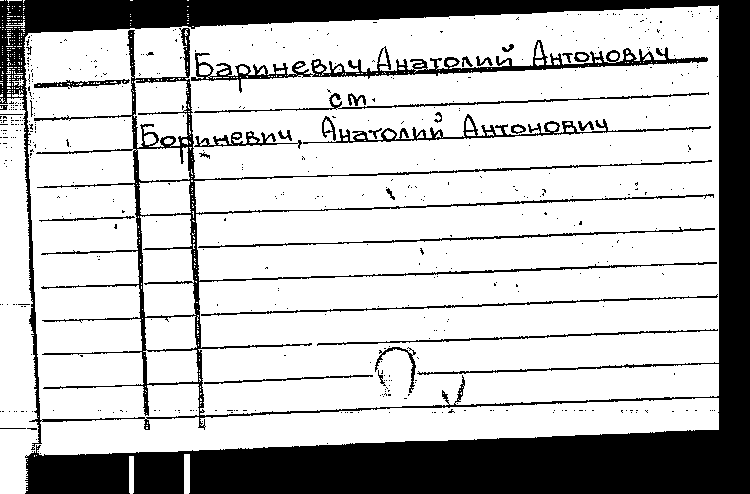 Бариневич, Анатолий Антонович
ст.
Бориневич, Анатолий Антонович